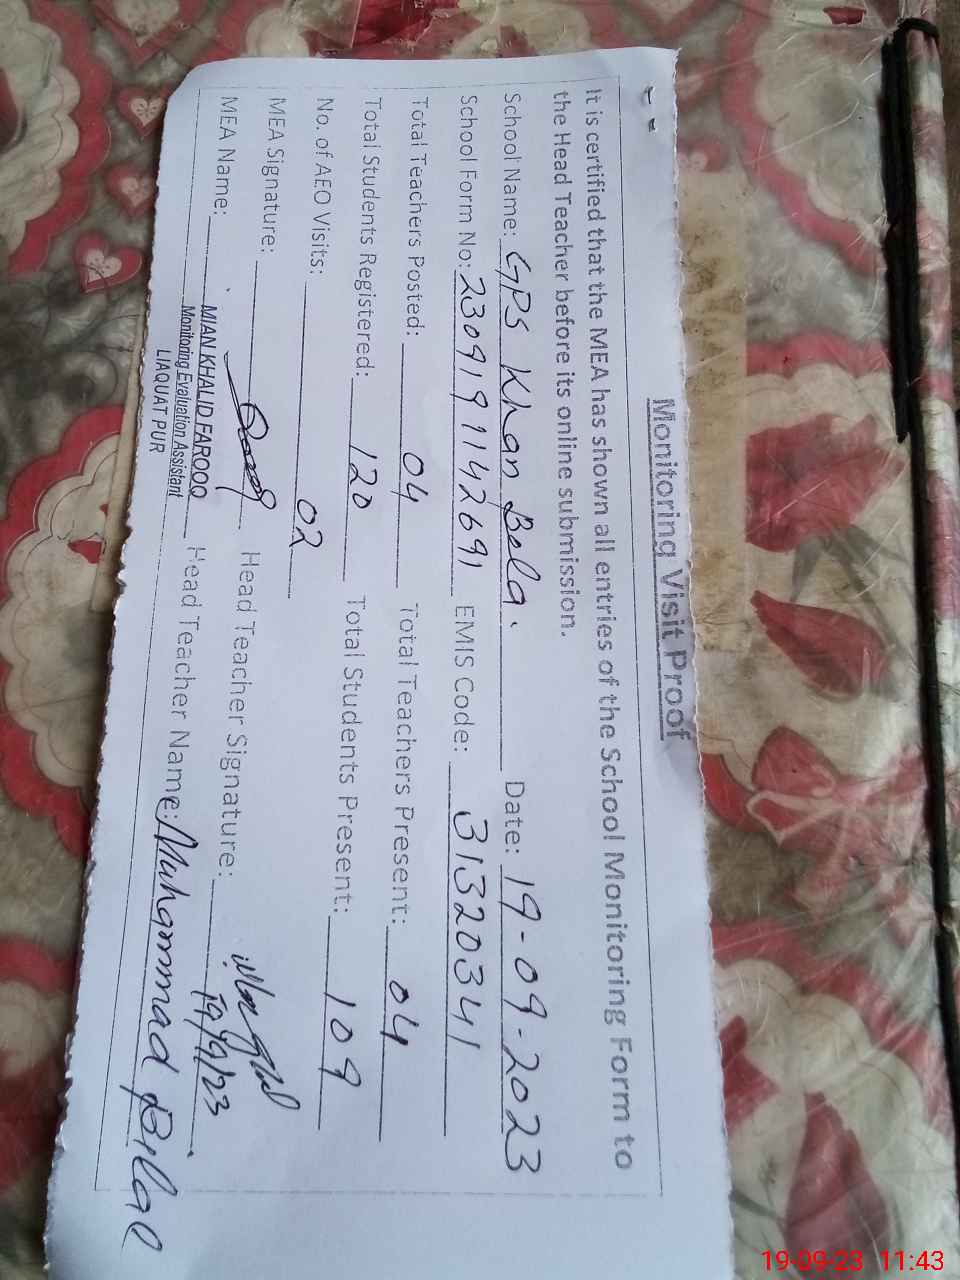 Monitoring Visit Proof
It is certified that the MEA has shown all entries of the School Monitoring Form to
the Head Teacher before its online submission.
School Name: GPS Khan Bela. Date: 19-09-2023
School Form No: 23091911142691 EMIS Code: 31320341
Total Teachers Posted: 04 Total Teachers Present: 04
Total Students Registered: 120 Total Students Present: 109
No. of AEO Visits: 02
MEA Signature: Head Teacher Signature:
19/9/23
MEA Name: MIAN KHALID FAROOQ Head Teacher Name: Muhammad Bilal
Monitoring Evaluation Assistant
LIAQUAT PUR
19-09-23 11:43